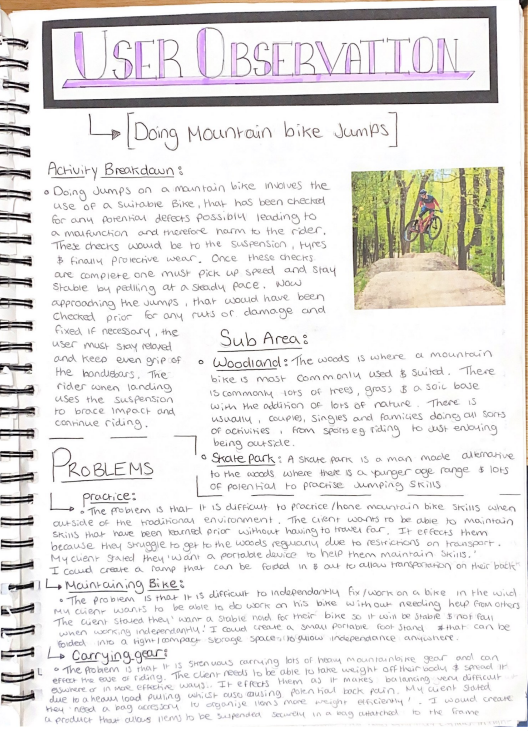 USER OBSERVATION
[Doing Mountain bike Jumps]
Activity Breakdown:
Doing Jumps on a mountain bike involves the
use of a suitable Bike, that has been checked
for any potential defects possibly leading to
a malfunction and therefore harm to the rider.
These checks would be to the suspension, tyres
& finally protective wear. Once these checks
are complete one must pick up speed and stay
Stable by pedlling at a steady pace. Now
approaching the Jumps, that would have been
checked prior for any ruts or damage and
fixed if necessary, the
user must stay relaxed
and keep even grip of
the handlebars. The
rider when landing
uses the suspension
to brace impact and
continue riding.
Sub Area:
Woodland: The woods is where a mountain
bike is most commonly used & suited. There
is commonly lots of trees, grass & a soil base
with the addition of lots of nature. There is
usually, couples, singles and families doing all sorts
of activities, from sports eg riding to just enjoying
being outside.
Skate park: A skate park is a man made alternative
to the woods where there is a younger age range & lots
of potential to practise Jumping skills
PROBLEMS
practice:
The problem is that it is difficult to practice/hone mountain bike skills when
outside of the traditional environment. The client wants to be able to maintain
skills that have been learned prior without having to travel far. It effects them
because they struggle to get to the woods regularly due to restrictions on transport.
My client stated they 'want a portable device to help them maintain skills.'
I could create a ramp that can be folded in & out to allow transportation on their back
Maintaining Bike:
The problem is that it is difficult to independently fix/work on a bike in the wild
My client wants to be able to do work on his bike without needing help from others
The client stated they 'want a stable hold for their bike so it will be stable & not fall
when working independently.' I could create a small portable foot stand that can be
folded into a light/compact storage space, to allow independance anywhere.
Carrying gear:
The problem is that it is strenuous carrying lots of heavy mountainbike gear and can
effect the ease of riding. The client needs to be able to take weight off their body & spread it
elsewhere or in more effective ways. It effects them as it makes balancing very difficult
due to a heavy load pulling whilst also causing potential back pain. My client stated
they 'need a bag accessory to organise items more weight efficiently'. I would create
a product that allows items to be suspended securely in a bag attatched to the frame